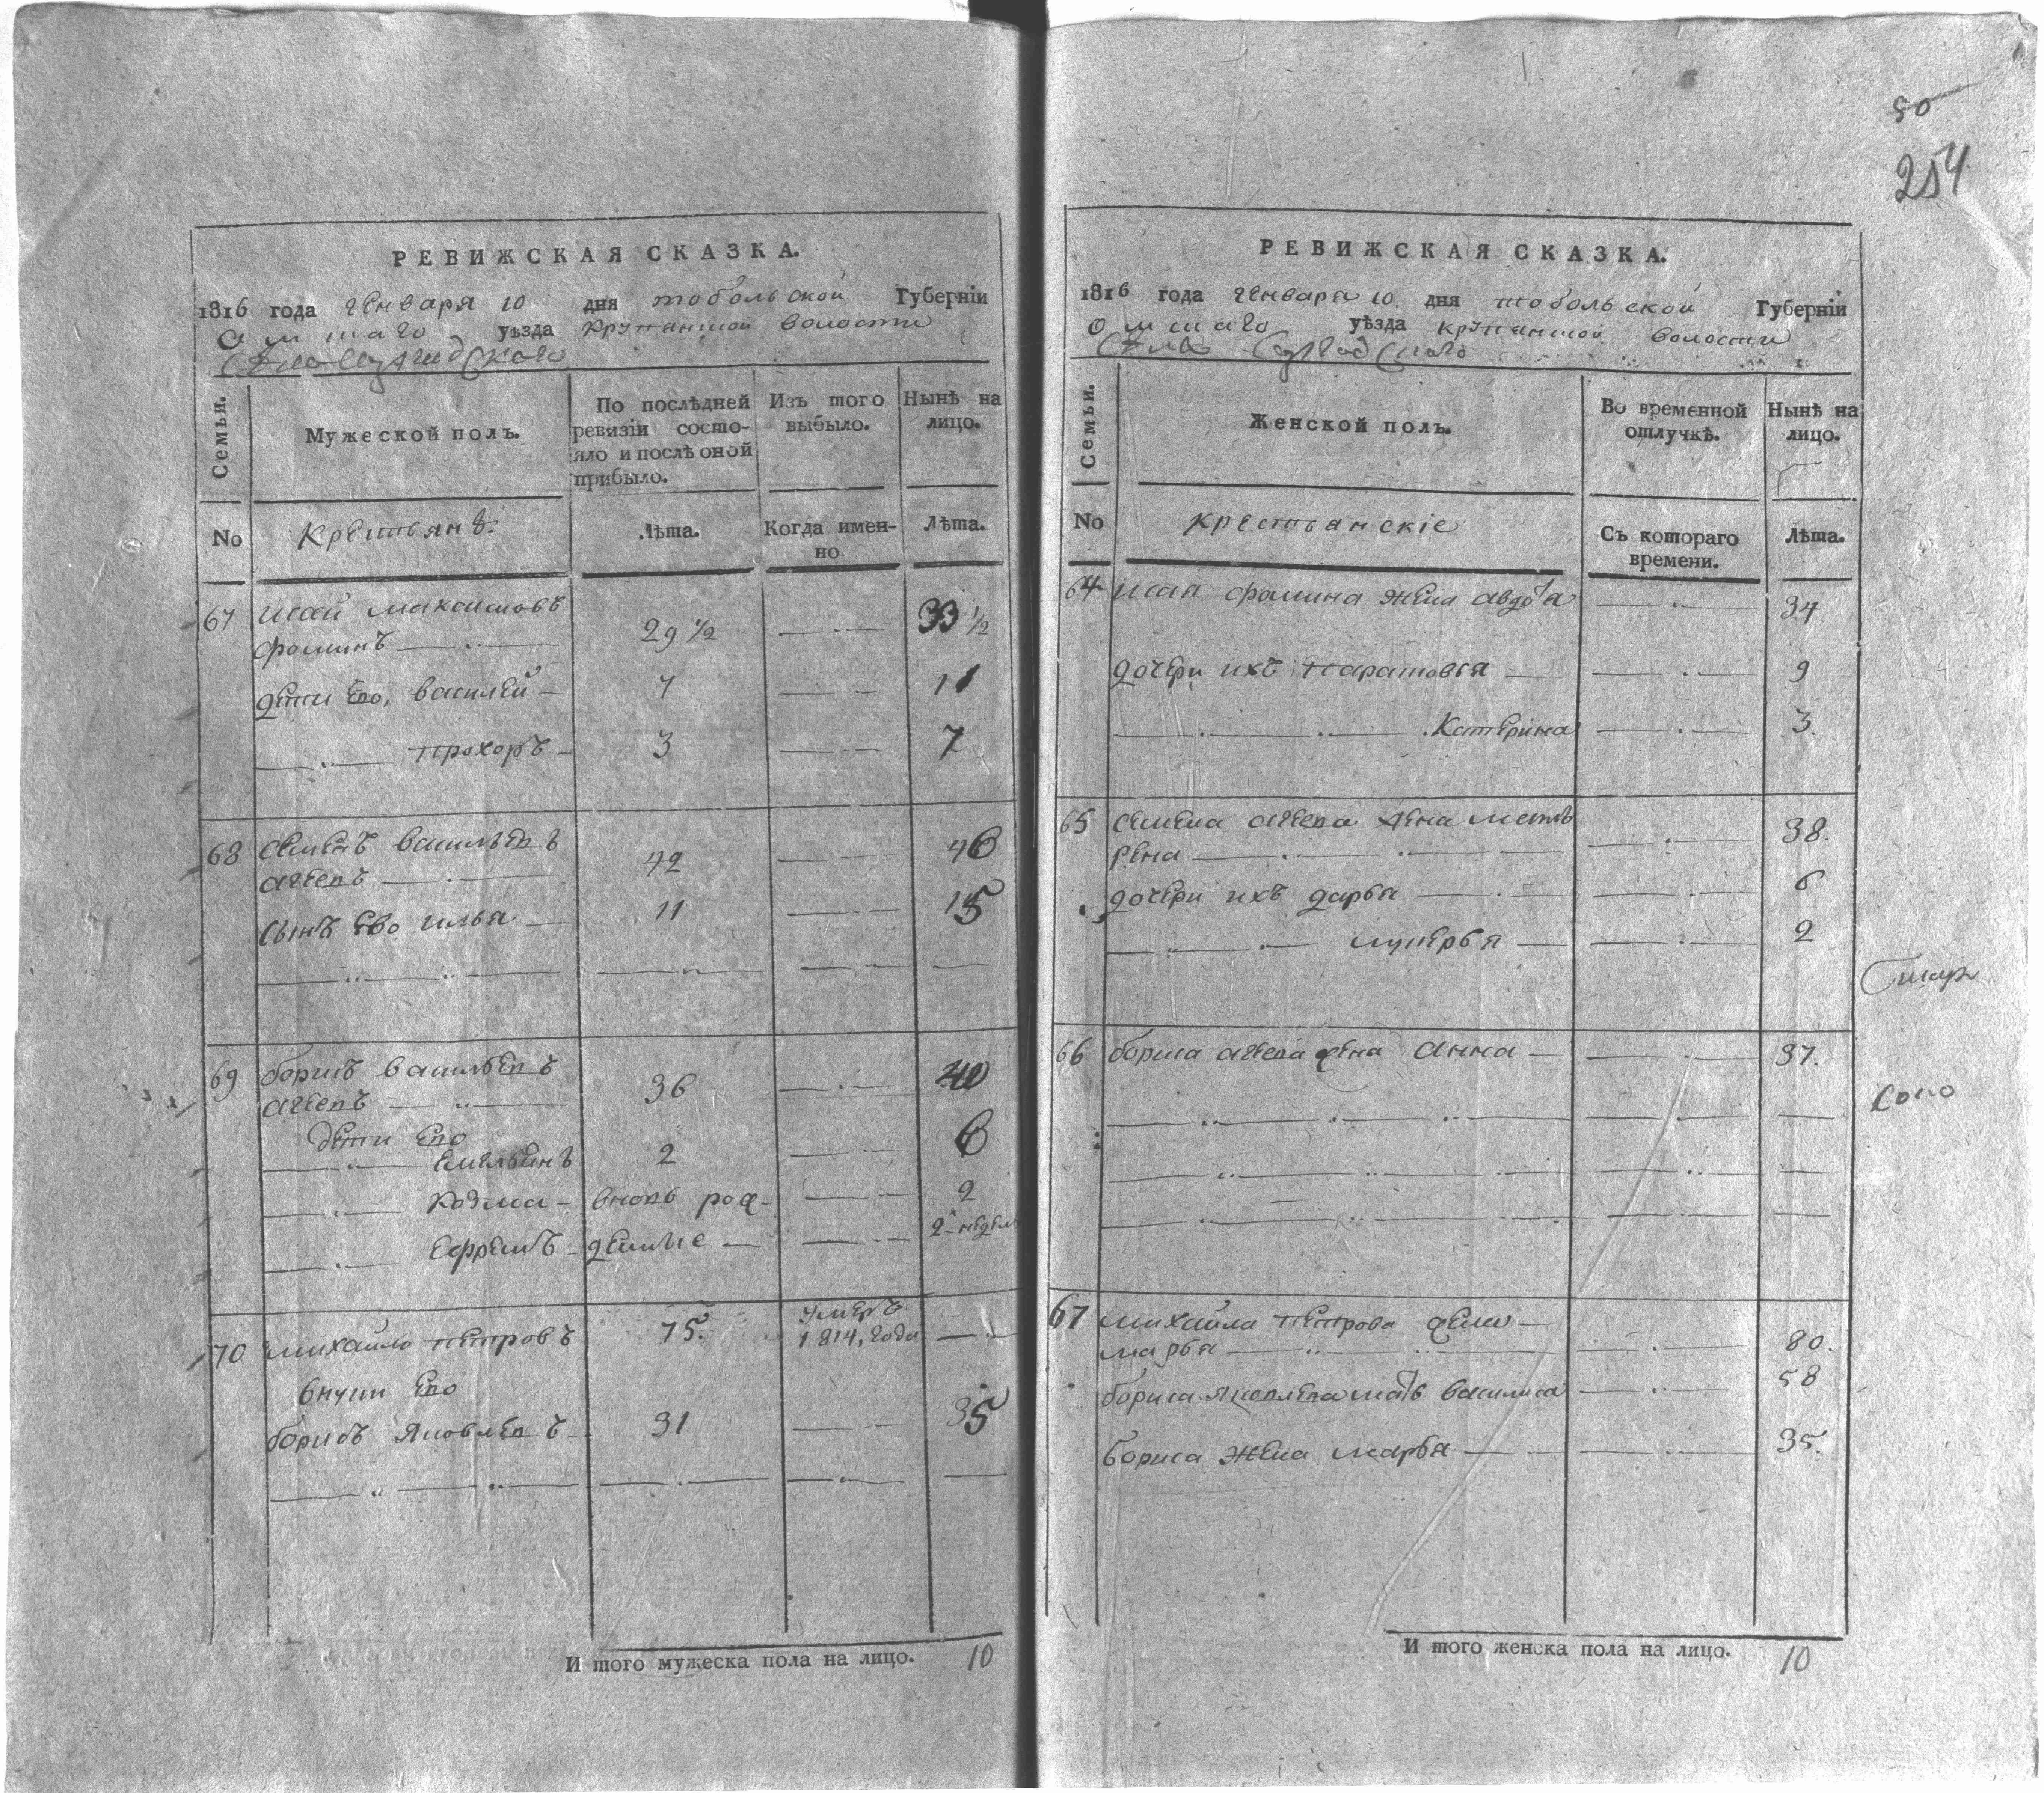 50
254
РЕВИЖСКАЯ СКАЗКА.
1816 года генваря 10 дня тобольской Губерніи
Омшаго уѣзда крупянской волости
Села
Семьи.
Мужеской полъ.
По послѣдней ревизіи состо-
яло и послѣ оной
прибыло.
Изъ того
выбыло.
Нынѣ на
лицо.
No
Крестьянъ.
Лѣта.
Когда имен-
но.
Лѣта.
67 Исай максимовъ
фоминъ 29 ½ 33 ½
дети ево, василей 7 11
прохоръ 3 7
68 Семенъ васильевъ
агеевъ 42 46
сынъ ево илья 11 15
69 борисъ васильевъ
агеевъ 36 40
дети ево
емельянъ 2 6
козма вновь рож- 2
ефремъ денные 2 недель
70 михайло петровъ 75. умеръ
1814, года
внуки ево
борисъ яковлевъ 31 35
И того мужеска пола на лицо. 10
РЕВИЖСКАЯ СКАЗКА.
1816 года генваря 10 дня тобольской Губерніи
Омшаго уѣзда крупянской волости
Села
Семьи.
Женской полъ.
Во временной
отлучкѣ.
Нынѣ на
лицо.
No
крестьянскіе
Съ котораго
времени.
Лѣта.
64 исая фомина жена авдотья 34
дочери ихъ парасковья 9
Катерина 3.
65 семена агеева жена матв
рена 38.
дочери ихъ дарья 6
лукерья 2
66 бориса агеева жена анна 37.
67 михайла петрова жена
марья 80.
бориса яковлева мать василиса 58
бориса жена марья 35.
И того женска пола на лицо. 10